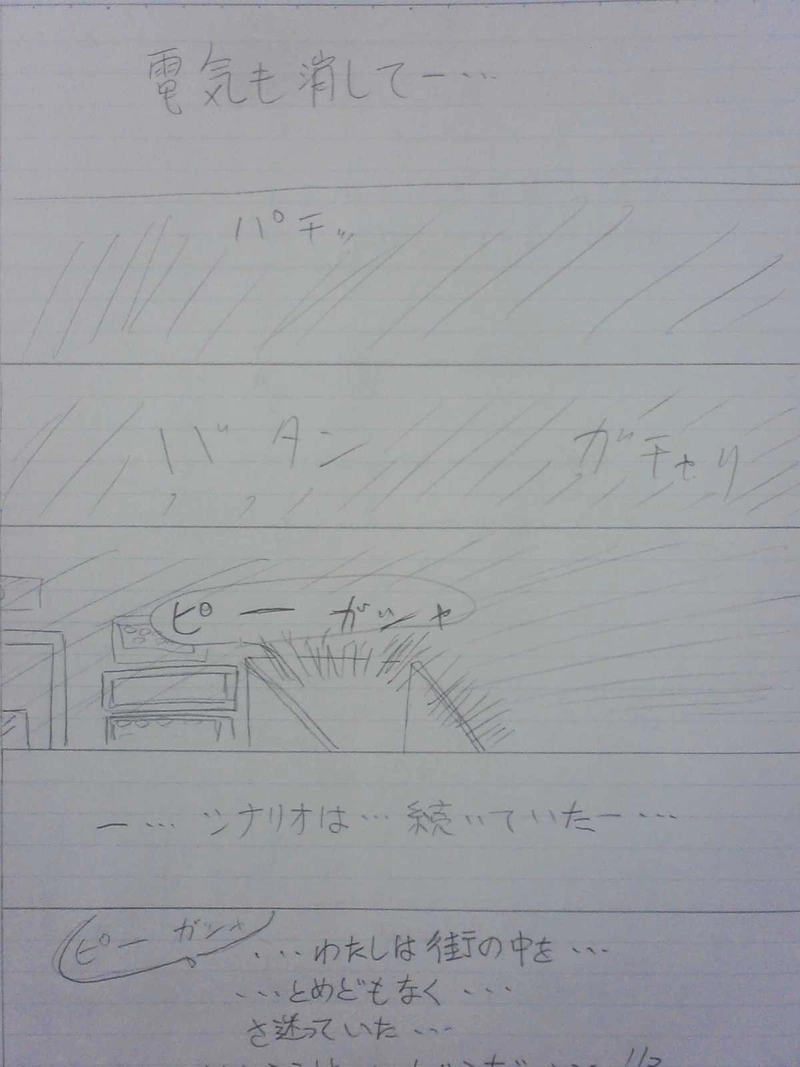 電気も消してー…
パチッ
バタン
ガチャリ
ピー ガッシャ
ー… シナリオは… 続いていたー…
ピー ガッシャ
…わたしは街の中を…
…とめどもなく…
さ迷っていた…